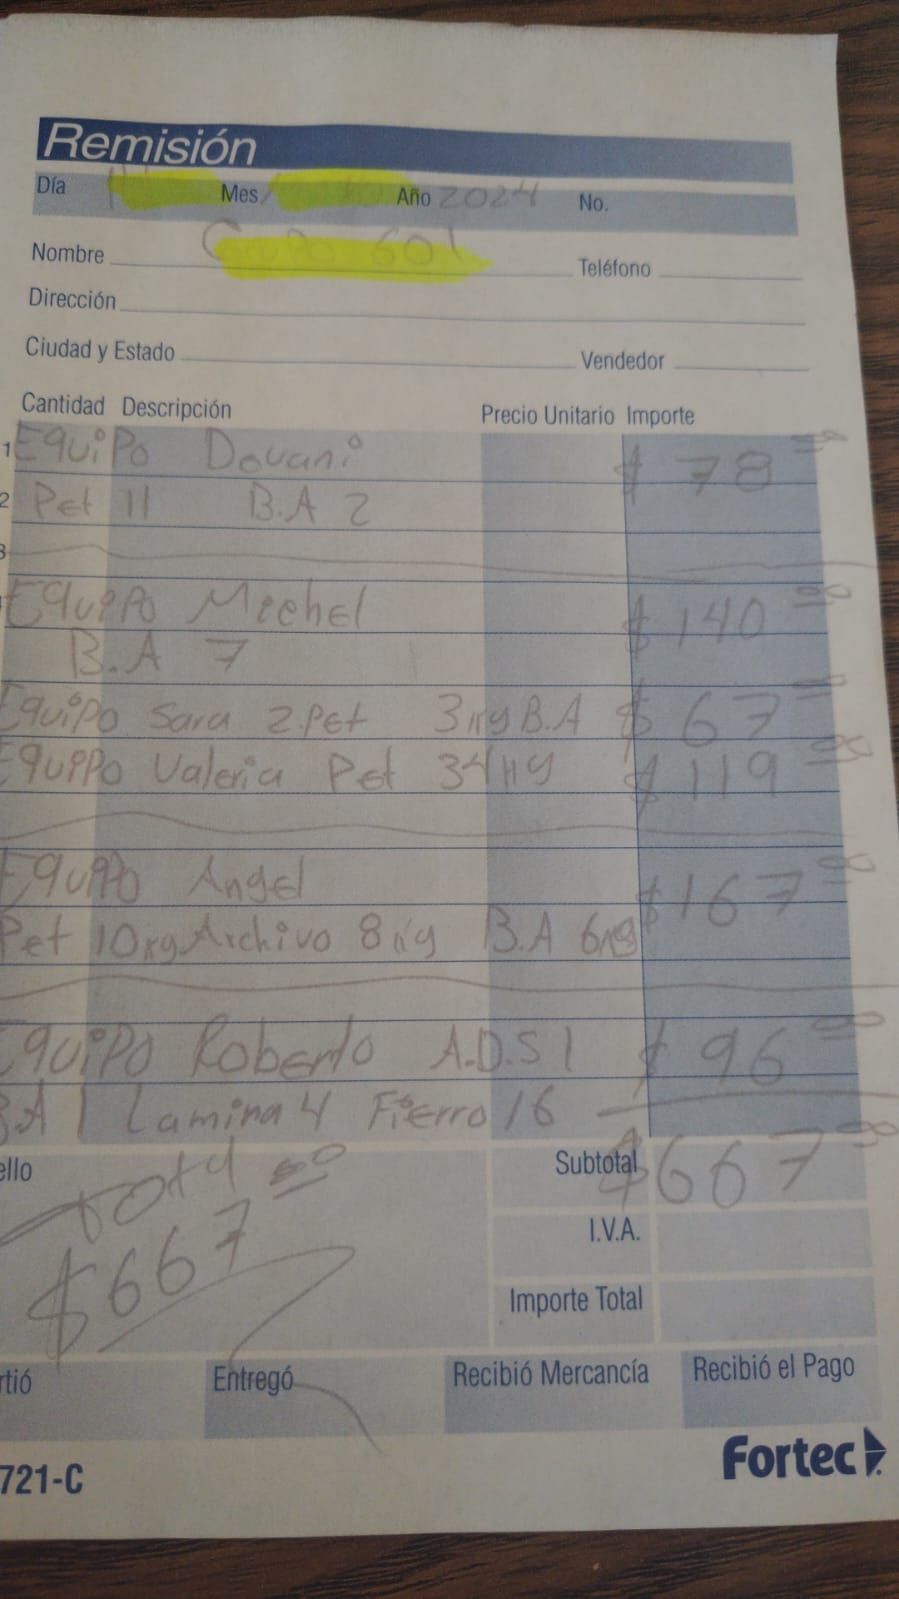 Remisión
Día Mes Año 2024 No.
Nombre Grupo 601 Teléfono
Dirección
Ciudad y Estado Vendedor
Cantidad Descripción Precio Unitario Importe
1 Equipo Dovani $ 78.00
2 Pet 11 B.A 2
3
Equipo Michel $ 140.00
B.A 7
Equipo Sara 2 Pet 3 kg B.A $ 67.00
Equipo Valeria Pet 34 kg $ 119.00
Equipo Angel $ 167.00
Pet 10 kg Archivo 8 kg B.A 6 kg
Equipo Roberto A.D.S 1 $ 96.00
B.A 1 Lamina 4 Fierro 16
ello Total 00 Subtotal $667.00
$667
I.V.A.
Importe Total
rtió Entregó Recibió Mercancía Recibió el Pago
721-C Fortec